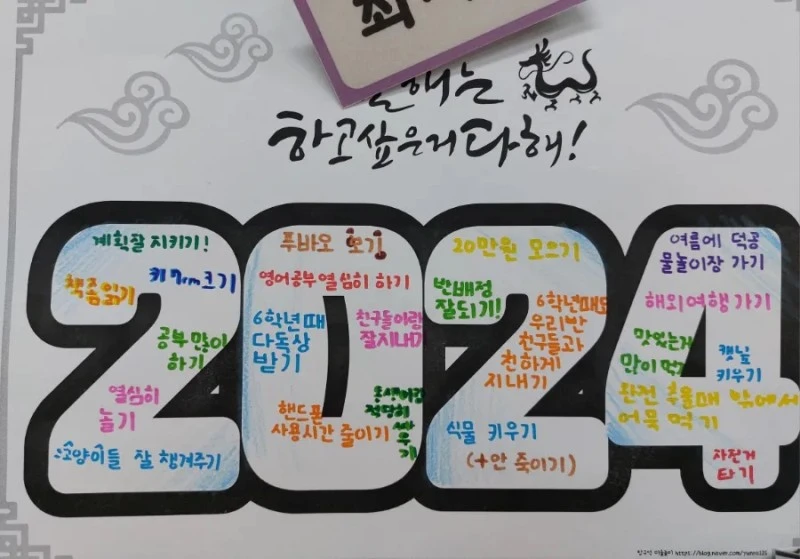 해는
하고싶은거 다해!
계획잘 지키기!
책좀읽기
키 7cm크기
공부 많이
하기
열심히
놀기
고양이들 잘 챙겨주기
푸바오 보기
영어공부 열심히 하기
6학년때
다독상
받기
친구들이랑
잘지내기
핸드폰
사용시간 줄이기
동생이랑
적당히
싸우
기
20만원 모으기
반배정
잘되기!
6학년때도
우리반
친구들과
친하게
지내기
식물 키우기
(+안 죽이기)
여름에 덕공
물놀이장 가기
해외여행 가기
맛있는거
많이 먹기
캣닢
키우기
완전 추울때 밖에서
어묵 먹기
자전거
타기